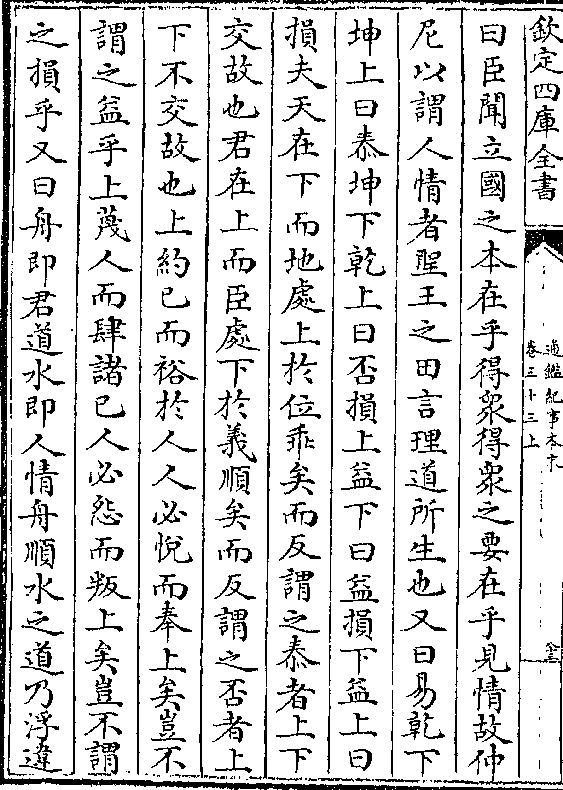 欽定四庫全書
通鑑紀事本末
卷三十三上
曰臣聞立國之本在乎得衆得衆之要在乎見情故仲
尼以謂人情者聖王之田言理道所生也又曰易乾下
坤上曰泰坤下乾上曰否損上益下曰益損下益上曰
損夫天在下而地處上於位乖矣而反謂之泰者上下
交故也君在上而臣處下於義順矣而反謂之否者上
下不交故也上約已而裕於人人必悅而奉上矣豈不
謂之益乎上蔑人而肆諸已人必怨而叛上矣豈不謂
之損乎又曰舟即君道水即人情舟順水之道乃浮違